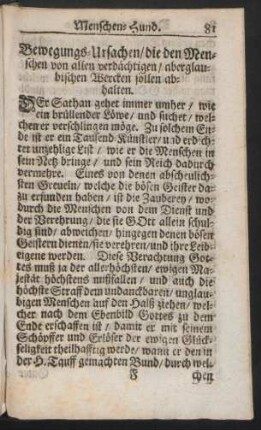 Menschen-Hund. 81
Bewegungs-Ursachen/die den Men-
schen von allen verdächtigen/aberglau-
bischen Wercken sollen ab-
halten.
DEr Sathan gehet immer umher/ wie
ein brüllender Löwe/ und suchet/ wel-
chen er verschlingen möge. Zu solchem En-
de ist er ein Tausend-Künstler/und erdich-
tet unzehlige List/ wie er die Menschen in
sein Netz bringe/ und sein Reich dadurch
vermehre. Eines von denen abscheulich-
sten Greueln/ welche die bösen Geister da-
zu erfunden haben/ ist die Zauberey/ wo-
durch die Menschen von dem Dienst und
der Verehrung/ die sie GOtt allein schul-
dig sind/ abweichen/ hingegen denen bösen
Geistern dienen/sie verehren/und ihre Leib-
eigene werden. Diese Verachtung Got-
tes muß ja der allerhöchsten/ ewigen Ma-
jestät höchstens mißfallen/ und auch die
höchste Straff dem undanckbaren/ unglau-
bigen Menschen auf den Halß ziehen/ wel-
cher nach dem Ebenbild Gottes zu dem
Ende erschaffen ist/ damit er mit seinem
Schöpffer und Erlöser der ewigen Glück-
seligkeit theilhafftig werde/ wann er den in
der H. Tauff gemachten Bund/ durch wel-
F chen